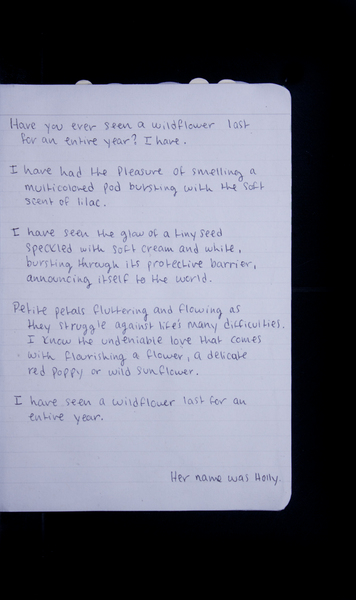 Have you ever seen a wildflower last
for an entire year? I have.
I have had the pleasure of smelling a
multicolored pod bursting with the soft
scent of lilac.
I have seen the glow of a tiny seed
speckled with soft cream and white,
bursting through its protective barrier,
announcing itself to the world.
Petite petals fluttering and flowing as
they struggle against life's many difficulties.
I know the undeniable love that comes
with flourishing a flower, a delicate
red poppy or wild sunflower.
I have seen a wildflower last for an
entire year.
Her name was Holly.